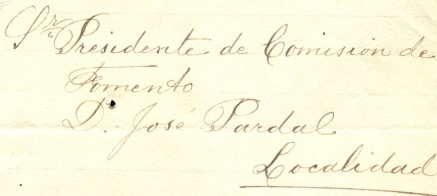 Sr. Presidente de Comisión de
Fomento
D. José Pardal
Localidad